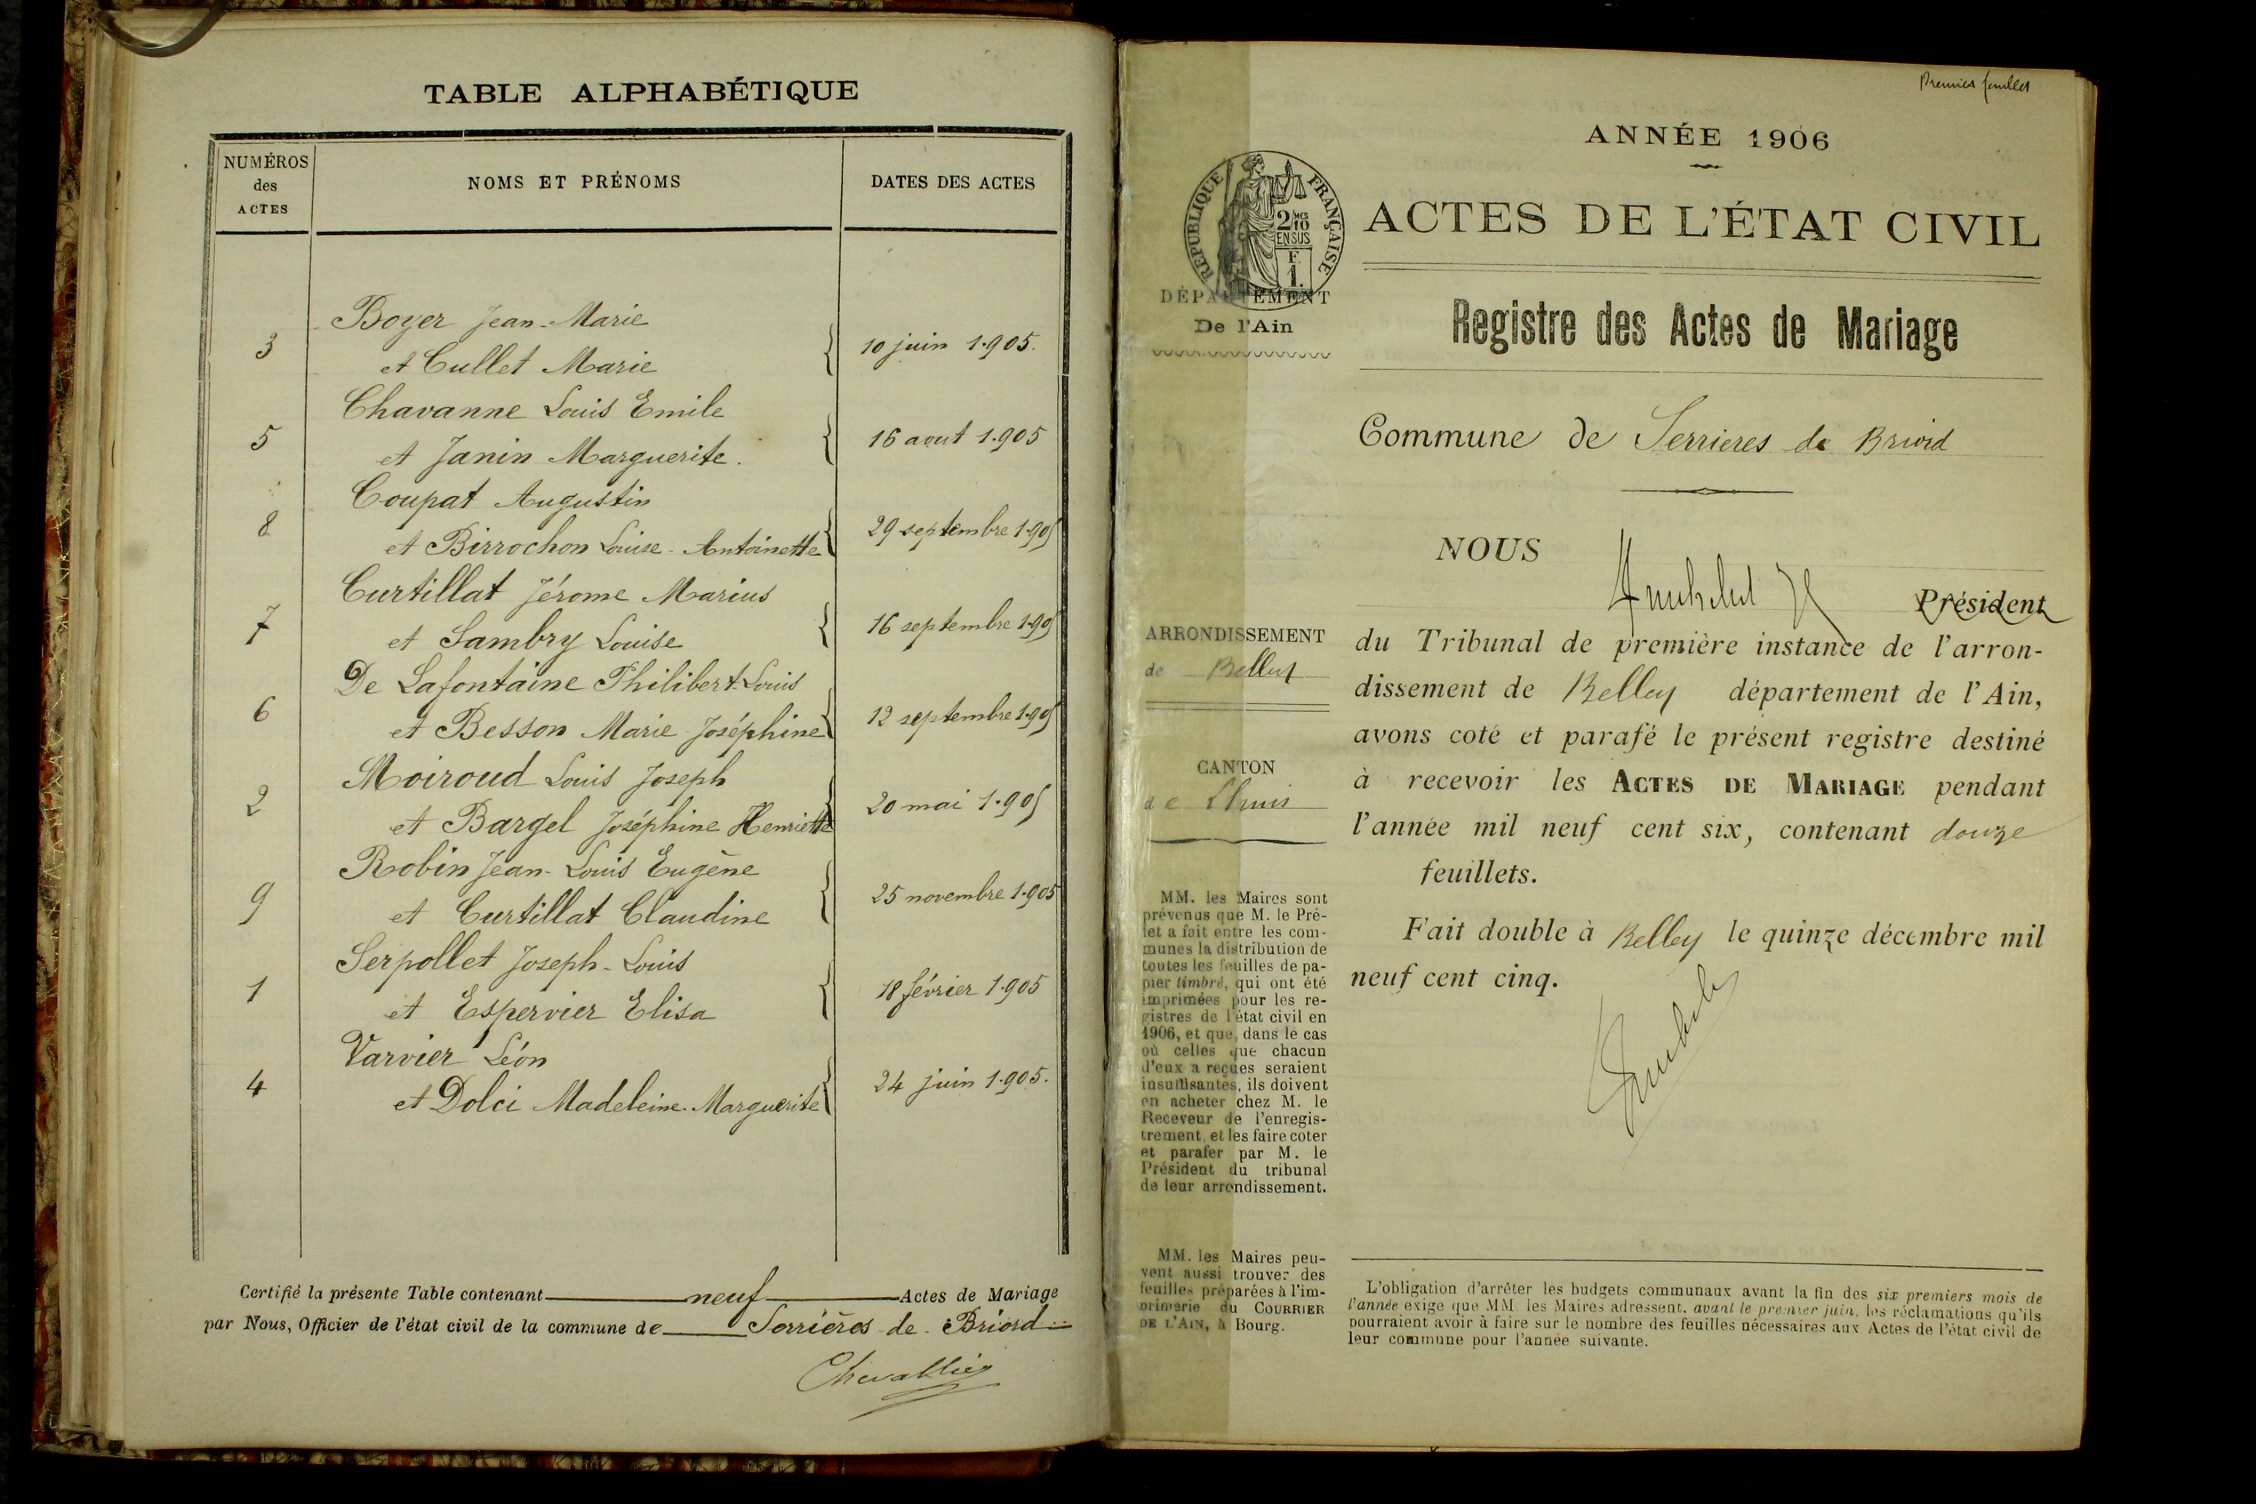 TABLE ALPHABÉTIQUE
NUMÉROS des ACTES
NOMS ET PRÉNOMS
DATES DES ACTES
Boyer Jean-Marie
3
et Cullet Marie
10 juin 1.905.
Chavanne Louis Emile
5
et Janin Marguerite.
16 aout 1.905
Coupat Augustin
8
et Birrochon Louise-Antoinette
29 septembre 1.905
Curtillat Jérome Marius
7
et Sambry Louise
16 septembre 1.905
De Lafontaine Philibert-Louis
6
et Besson Marie Joséphine
12 septembre 1.905
Moiroud Louis Joseph
2
et Bargel Joséphine Henriette
20 mai 1.905
Robin Jean-Louis Eugène
9
et Curtillat Claudine
25 novembre 1.905
Serpollet Joseph-Louis
1
et Espervier Elisa
18 février 1.905
Varvier Léon
4
et Dolci Madeleine-Marguerite
24 juin 1.905.
Certifié la présente Table contenant neuf Actes de Mariage
par Nous, Officier de l'état civil de la commune de Serrières-de-Briord
Chevallier
Premier feuillet
ANNÉE 1906
ACTES DE L'ÉTAT CIVIL
RÉPUBLIQUE FRANÇAISE
2/10 MES
EN SUS
F.
1.
DÉPARTEMENT
De l'Ain
Registre des Actes de Mariage
Commune de Serrieres de Briord
NOUS
Président
ARRONDISSEMENT
de Belley
CANTON
de Lhuis
du Tribunal de première instance de l'arron-
dissement de Belley département de l'Ain,
avons coté et parafé le présent registre destiné
à recevoir les ACTES DE MARIAGE pendant
l'année mil neuf cent six, contenant douze
feuillets.
Fait double à Belley le quinze décembre mil
neuf cent cinq.
MM. les Maires sont
prévenus que M. le Pré-
fet a fait entre les com-
munes la distribution de
toutes les feuilles de pa-
pier timbré, qui ont été
imprimées pour les re-
gistres de l'état civil en
1906, et que, dans le cas
où celles que chacun
d'eux a reçues seraient
insuffisantes, ils doivent
en acheter chez M. le
Receveur de l'enregis-
trement, et les faire coter
et parafer par M. le
Président du tribunal
de leur arrondissement.
MM. les Maires peu-
vent aussi trouver des
feuilles préparées à l'im-
primerie du COURRIER
DE L'AIN, à Bourg.
L'obligation d'arrêter les budgets communaux avant la fin des six premiers mois de
l'année exige que MM. les Maires adressent, avant le premier juin, les réclamations qu'ils
pourraient avoir à faire sur le nombre des feuilles nécessaires aux Actes de l'état civil de
leur commune pour l'année suivante.